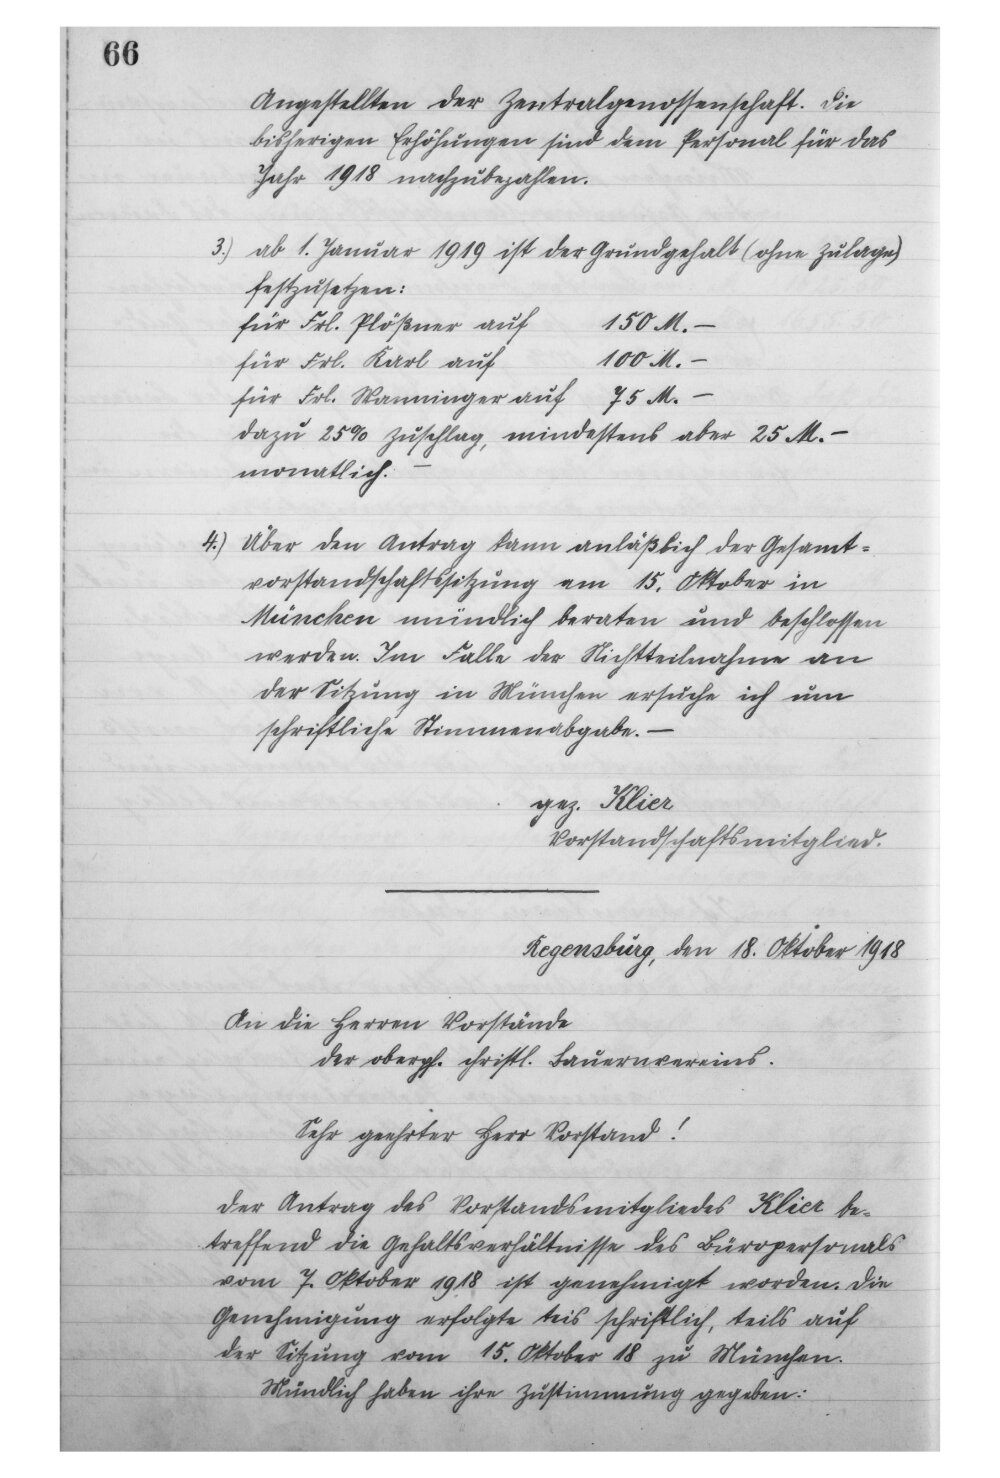 66
Angestellten der Zentralgenossenschaft. Die
bisherigen Erhöhungen sind dem Personal für das
Jahr 1918 nachzubezahlen.
3.) ab 1. Januar 1919 ist der Grundgehalt (ohne Zulage)
festzusetzen:
für Frl. Plößner auf 150 M.—
für Frl. Karl auf 100 M.—
für Frl. Wanninger auf 75 M.—
dazu 25% Zuschlag, mindestens aber 25 M.—
monatlich. —
4.) Über den Antrag kann anläßlich der Gesamt=
vorstandschaftssitzung am 15. Oktober in
München mündlich beraten und beschlossen
werden. Im Falle der Nichtteilnahme an
der Sitzung in München ersuche ich um
schriftliche Stimmenabgabe.—
gez. Klier
Vorstandschaftsmitglied.
Regensburg, den 18. Oktober 1918
An die Herren Vorstände
der oberpf. christl. Bauernvereins.
Sehr geehrter Herr Vorstand!
Der Antrag des Vorstandsmitgliedes Klier be=
treffend die Gehaltsverhältnisse des Büropersonals
vom 7. Oktober 1918 ist genehmigt worden. Die
Genehmigung erfolgte teis schriftlich, teils auf
der Sitzung vom 15. Oktober 18 zu München.
Mündlich haben ihre Zustimmung gegeben: